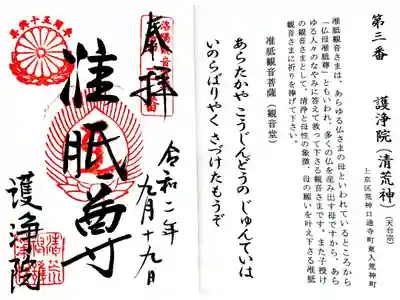 第三番 護浄院(清荒神)(天台宗)
上京区荒神口通寺町東入荒神町
准胝観音さまは、あらゆる仏さまの母といわれているところから
「仏母准胝尊」ともいわれ、多くの仏を産み出す母ですから、あら
ゆる人々のなやみに答えて救って下さる観音さまです。また子授け
の観音さまとして、清浄と母性の象徴、母の願いを叶え下さる准胝
観音さまに祈りを捧げて下さい。
准胝観音菩薩(観音堂)
あらたかや こうじんどうの じゅんていは
いのらばりやく さづけたもうぞ
奉拝
令和二年
九月十九日
准胝尊
護浄院